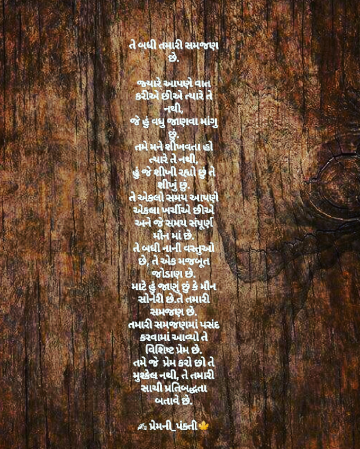 તે બધી તમારી સમજણ
છે.
જ્યારે આપણે વાત
કરીએ છીએ ત્યારે તે
નથી,
જે હું વધુ જાણવા માંગુ
છું,
તમે મને શીખવતા હો
ત્યારે તે નથી,
હું જે શીખી રહ્યો છું તે
શીખું છું.
તે એકલો સમય આપણે
એકલા ખર્ચીએ છીએ
અને જે સમય સંપૂર્ણ
મૌન માં છે.
તે બધી નાની વસ્તુઓ
છે, તે એક મજબૂત
જોડાણ છે.
માટે હું જાણું છું કે મૌન
સોનેરી છે.તે તમારી
સમજણ છે.
તમારી સમજણમાં પસંદ
કરવામાં આવ્યો તે
વિશિષ્ટ પ્રેમ છે.
તમે જે પ્રેમ કરો છો તે
મુશ્કેલ નથી, તે તમારી
સાચી પ્રતિબદ્ધતા
બતાવે છે.
✍ પ્રેમની_પંક્તી🍁